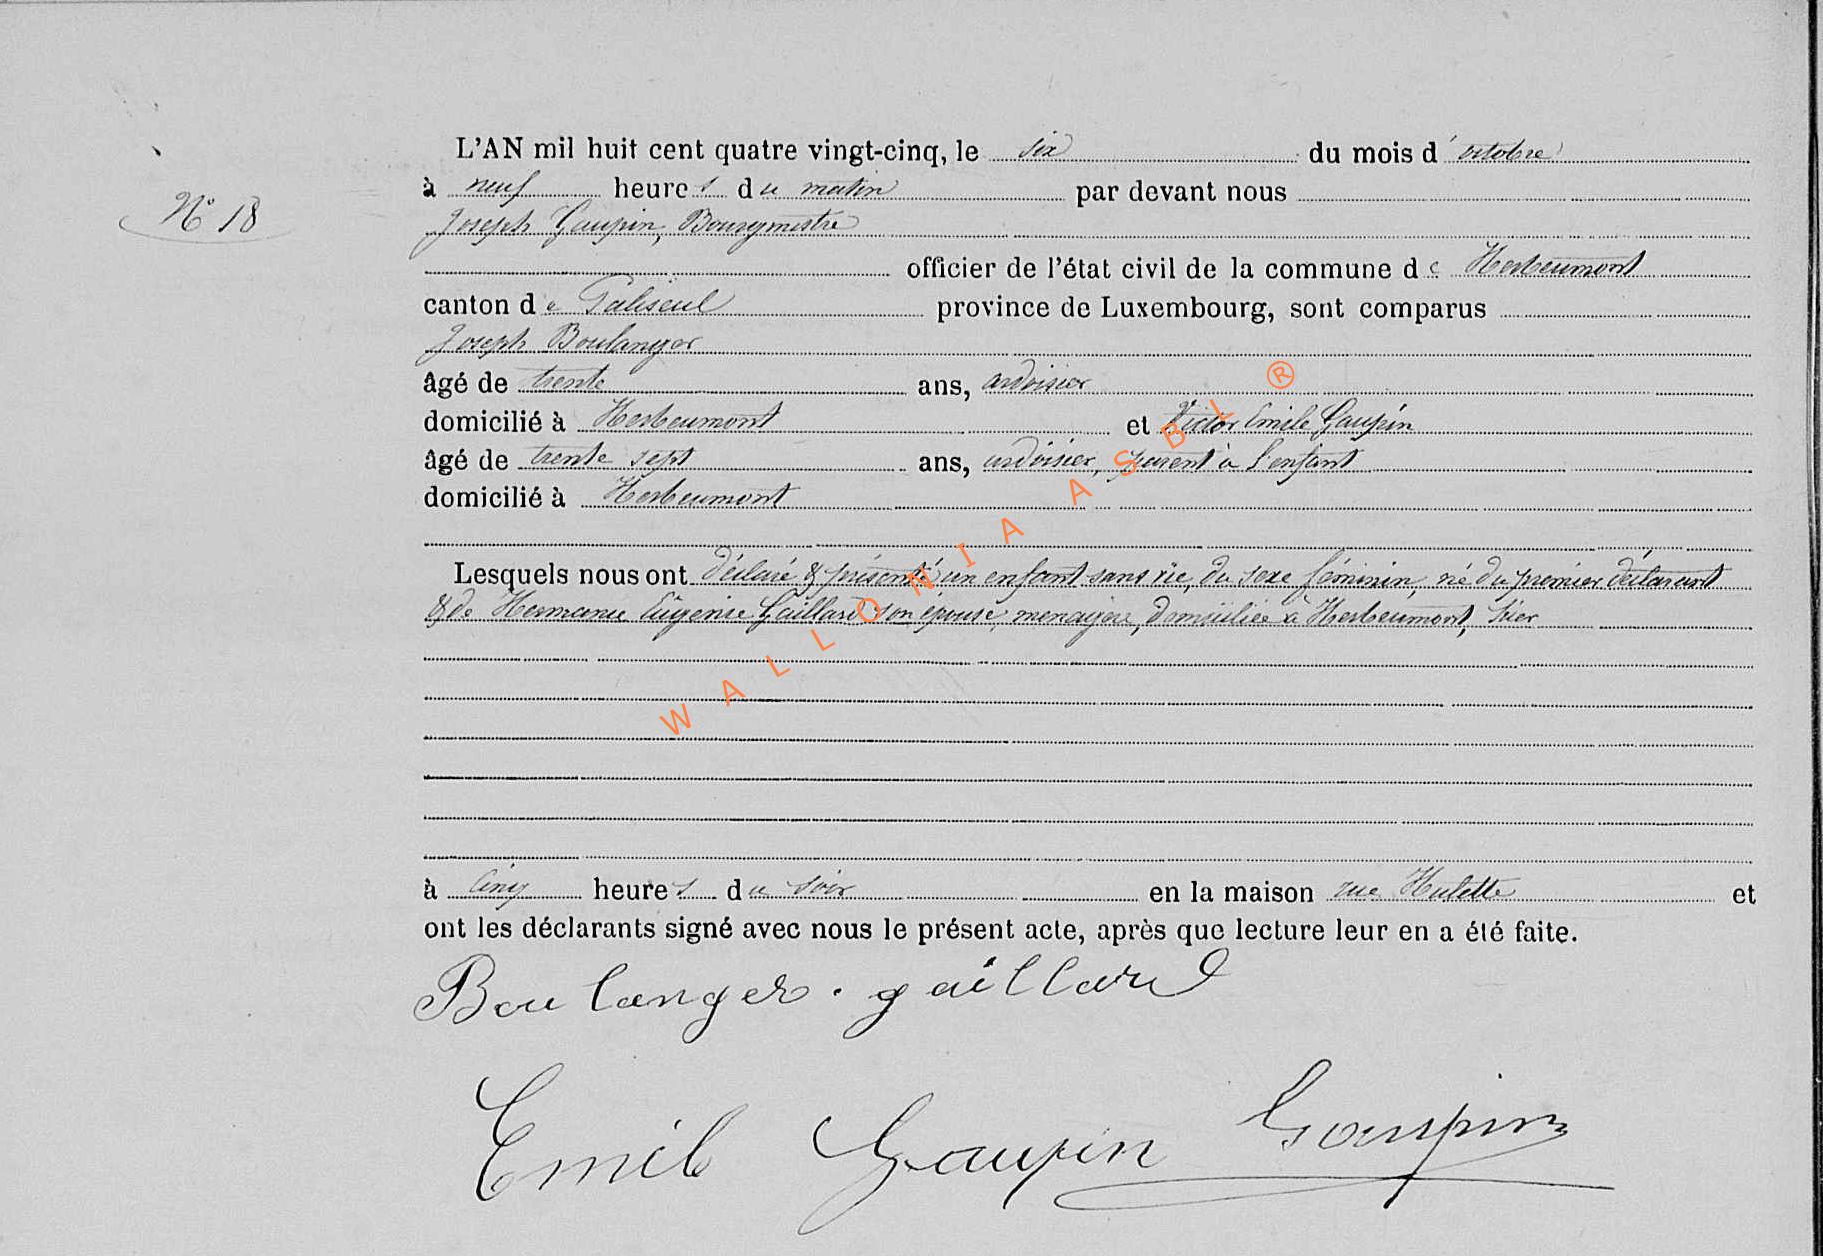 L'AN mil huit cent quatre vingt-cinq, le six du mois d'octobre
N° 18
à neuf heures du matin par devant nous
Joseph Gaupin, Bourgmestre
officier de l'état civil de la commune de Herbeumont
canton de Paliseul province de Luxembourg, sont comparus
Joseph Boulanger
âgé de trente ans, ardoisier
domicilié à Herbeumont et Victor Emile Gaupin
âgé de trente sept ans, ardoisier, parent à l'enfant
domicilié à Herbeumont
Lesquels nous ont déclaré & présenté un enfant sans vie, du sexe féminin, né du premier déclarant
& de Hermance Eugénie Gaillard son épouse, menagère, domiciliée à Herbeumont, hier
à cinq heures du soir en la maison rue Hulette et
ont les déclarants signé avec nous le présent acte, après que lecture leur en a été faite.
Boulanger. gaillard
Emile Gaupin Gaupin
WALLONIA ASBL ®